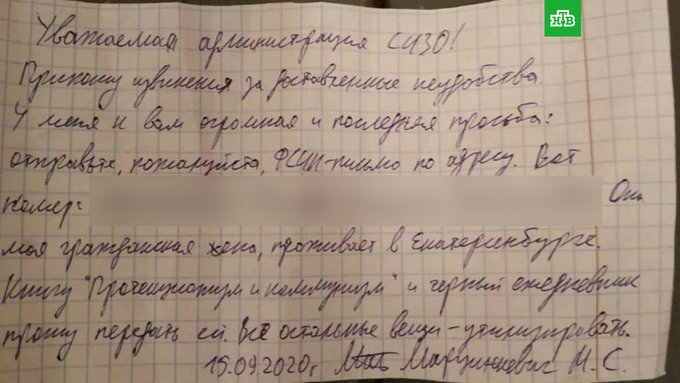 НТВ
Уважаемая администрация СИЗО!
Приношу извинения за доставленные неудобства.
У меня к вам огромная и последняя просьба:
отправьте, пожалуйста, ФСИН-письмо по адресу. Вот
номер: Она
моя гражданская жена, проживает в Екатеринбурге.
Книгу "Протекционизм и коммунизм" и черный ежедневник
прошу передать ей. Все остальные вещи - утилизировать.
15.09.2020г Марцинкевич М.С.